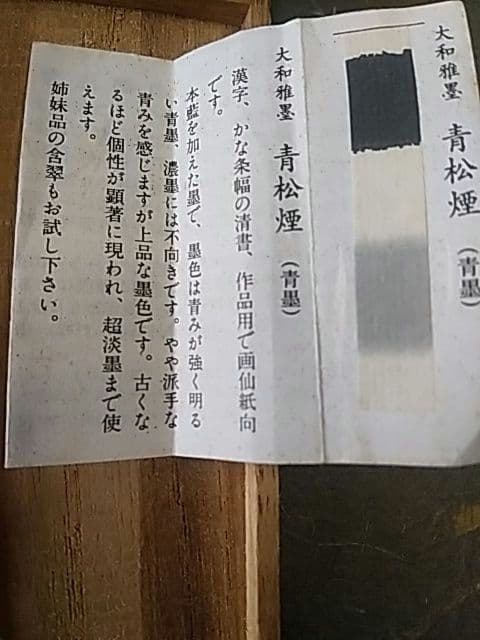 大和雅墨　青松煙（青墨）
大和雅墨　青松煙（青墨）
漢字、かな条幅の清書、作品用で画仙紙向
です。
本藍を加えた墨で、墨色は青みが強く明る
い青墨、濃墨には不向きです。やや派手な
青みを感じますが上品な墨色です。古くな
るほど個性が顕著に現われ、超淡墨まで使
えます。
姉妹品の含翠もお試し下さい。